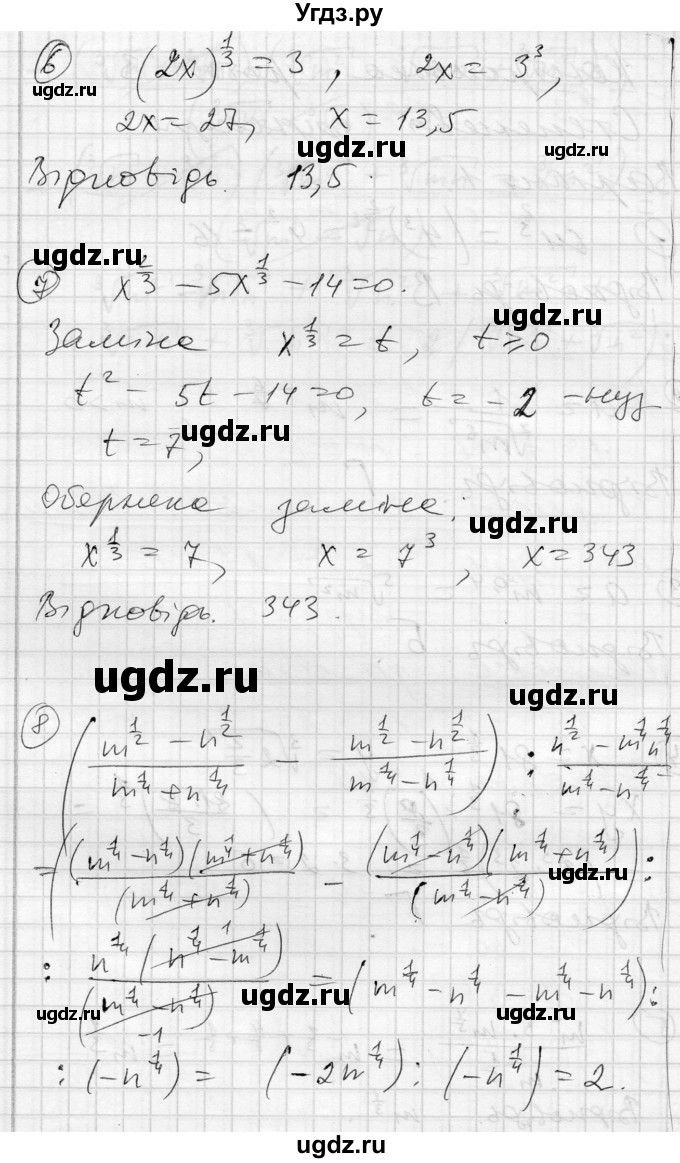 Угдз.ру
⑥ (2x)^{1/3} = 3, 2x = 3^3,
ugdz.ru
2x = 27, x = 13,5
ugdz.ru ugdz.ru
Відповідь. 13,5.
ugdz.ru
⑦ x^{2/3} − 5x^{1/3} − 14 = 0.
Заміна x^{1/3} = t, t ⩾ 0
ugdz.ru
t^2 − 5t − 14 = 0, t = −2 −
t = 7,
ugdz.ru
Обернена заміна:
ugdz.ru
x^{1/3} = 7, x = 7^3, x = 343
Відповідь. 343.
ugdz.ru
ugdz.ru
⑧ ((m^{1/2} − n^{1/2})/(m^{1/4} + n^{1/4}) − (m^{1/2} − n^{1/2})/(m^{1/4} − n^{1/4})) : (n^{1/2} − m^{1/4}n^{1/4})/(m^{1/4} − n^{1/4}) =
= ((m^{1/4} − n^{1/4})(m^{1/4} + n^{1/4})/(m^{1/4} + n^{1/4}) − (m^{1/4} − n^{1/4})(m^{1/4} + n^{1/4})/(m^{1/4} − n^{1/4})) :
ugdz.ru
: n^{1/4}(n^{1/4} − m^{1/4})^{1}/(m^{1/4} − n^{1/4})_{−1} = (m^{1/4} − n^{1/4} − m^{1/4} − n^{1/4}) :
ugdz.ru ugdz.ru ugdz.ru
: (−n^{1/4}) = (−2n^{1/4}) : (−n^{1/4}) = 2.
ugdz.ru